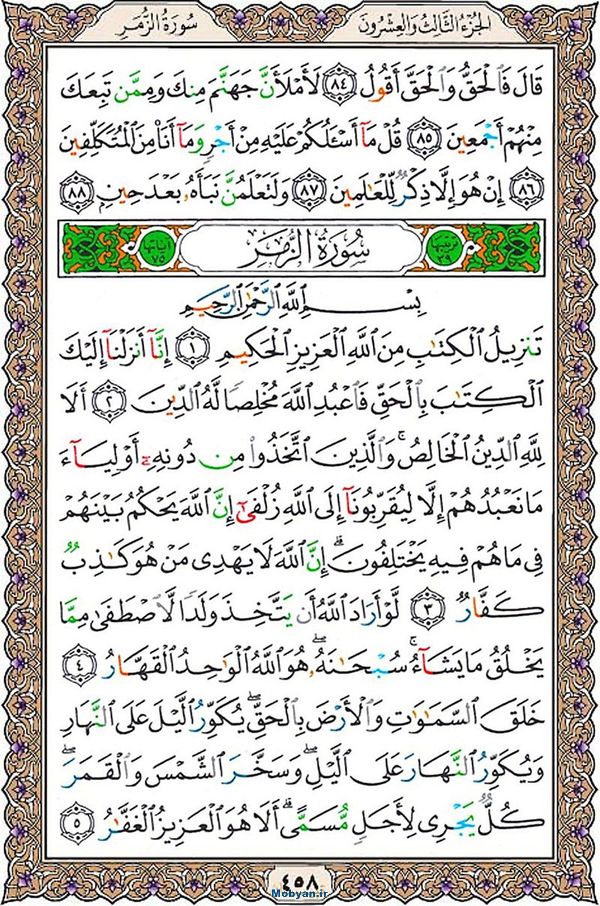 الجُزءُ الثَّالِثُ وَالعِشرُونَ
سُورَةُ الزُّمَر
قَالَ فَالْحَقُّ وَالْحَقَّ أَقُولُ ٨٤ لَأَمْلَأَنَّ جَهَنَّمَ مِنكَ وَمِمَّن تَبِعَكَ
مِنْهُمْ أَجْمَعِينَ ٨٥ قُلْ مَآ أَسْـَٔلُكُمْ عَلَيْهِ مِنْ أَجْرٍ وَمَآ أَنَا۠ مِنَ الْمُتَكَلِّفِينَ
٨٦ إِنْ هُوَ إِلَّا ذِكْرٌ لِّلْعَـٰلَمِينَ ٨٧ وَلَتَعْلَمُنَّ نَبَأَهُۥ بَعْدَ حِينِۭ ٨٨
ترتيبها ٣٩
سُورَةُ الزُّمَر
آياتها ٧٥
بِسْمِ اللَّهِ الرَّحْمَـٰنِ الرَّحِيمِ
تَنزِيلُ الْكِتَـٰبِ مِنَ اللَّهِ الْعَزِيزِ الْحَكِيمِ ١ إِنَّآ أَنزَلْنَآ إِلَيْكَ
الْكِتَـٰبَ بِالْحَقِّ فَاعْبُدِ اللَّهَ مُخْلِصًا لَّهُ الدِّينَ ٢ أَلَا
لِلَّهِ الدِّينُ الْخَالِصُ ۚ وَالَّذِينَ اتَّخَذُوا۟ مِن دُونِهِۦٓ أَوْلِيَآءَ
مَا نَعْبُدُهُمْ إِلَّا لِيُقَرِّبُونَآ إِلَى اللَّهِ زُلْفَىٰٓ إِنَّ اللَّهَ يَحْكُمُ بَيْنَهُمْ
فِى مَا هُمْ فِيهِ يَخْتَلِفُونَ ۗ إِنَّ اللَّهَ لَا يَهْدِى مَنْ هُوَ كَـٰذِبٌ
كَفَّارٌ ٣ لَّوْ أَرَادَ اللَّهُ أَن يَتَّخِذَ وَلَدًا لَّاصْطَفَىٰ مِمَّا
يَخْلُقُ مَا يَشَآءُ ۚ سُبْحَـٰنَهُۥ ۖ هُوَ اللَّهُ الْوَٰحِدُ الْقَهَّارُ ٤
خَلَقَ السَّمَـٰوَٰتِ وَالْأَرْضَ بِالْحَقِّ ۖ يُكَوِّرُ الَّيْلَ عَلَى النَّهَارِ
وَيُكَوِّرُ النَّهَارَ عَلَى الَّيْلِ ۖ وَسَخَّرَ الشَّمْسَ وَالْقَمَرَ ۖ
كُلٌّ يَجْرِى لِأَجَلٍ مُّسَمًّى ۗ أَلَا هُوَ الْعَزِيزُ الْغَفَّـٰرُ ٥
٤٥٨
Mobyan.ir